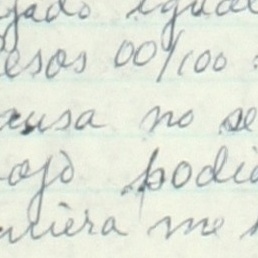 jado igual
esos 00/100
ausa no se
ojó podi
niera me